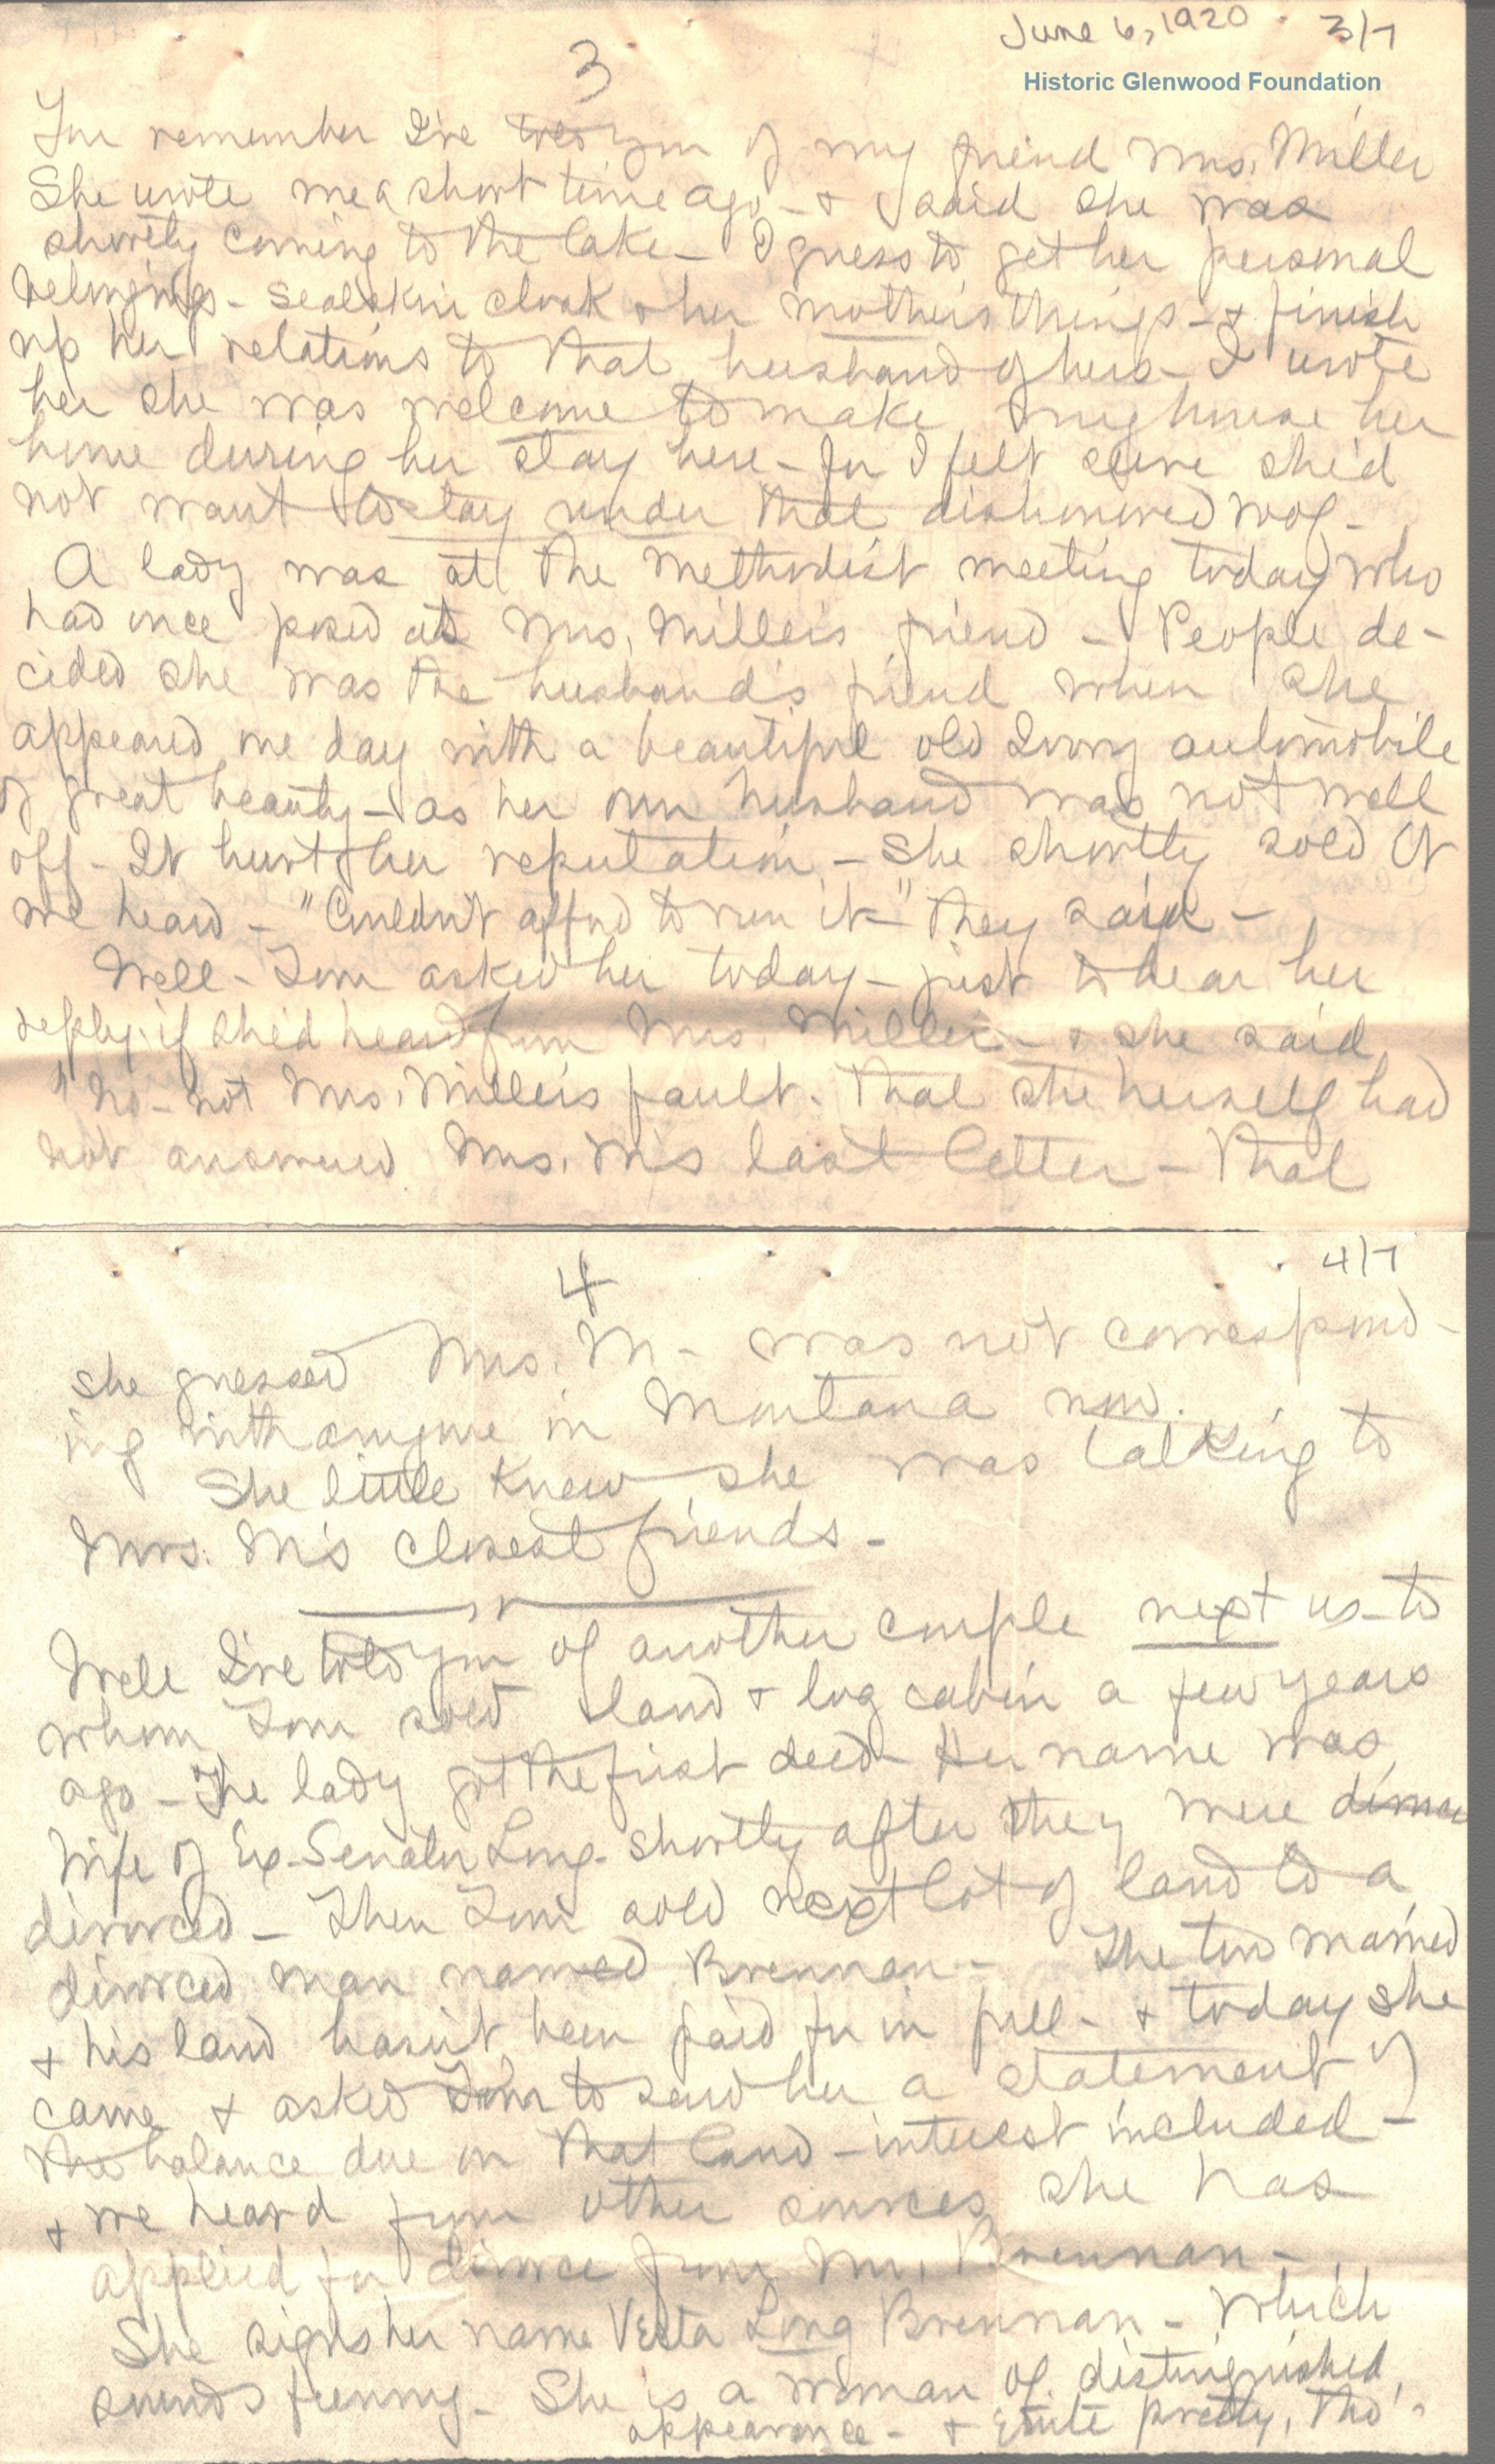 June 6, 1920 3/7
Historic Glenwood Foundation
3
You remember I've told you of my friend Mrs. Miller
She wrote me a short time ago - & said she was
shortly coming to the lake - I guess to get her personal
belongings - sealskin cloak & her mother's things - & finish
up her relations to that husband of hers - I wrote
her she was welcome to make my house her
home during her stay here - for I felt sure she'd
not want to stay under that dishonored roof -
A lady was at the Methodist meeting today who
had once posed as Mrs. Miller's friend - People de-
cided she was the husband's friend when she
appeared one day with a beautiful old Ivory automobile
of great beauty - as her own husband was not well
off - It hurt her reputation - She shortly sold it
we heard - "Couldn't afford to run it" they said -
Well - Tom asked her today - just to hear her
reply if she'd heard from Mrs. Miller - & she said
"no - not Mrs. Miller's fault. That she herself had
not answered Mrs. M's last letter - that
4/7
4
she guessed Mrs. M - was not correspond-
ing with anyone in Montana now.
She little knew she was talking to
Mrs. M's closest friends -
Well I've told you of another couple next us - to
whom Tom sold land & log cabin a few years
ago - The lady got the first deed - Her name was
Wife of Ex-Senator Long - shortly after they were
divorced - Then Tom sold next lot of land to a
divorced man named Brennan - The two married
& his land hasn't been paid for in full - & today she
came & asked Tom to send her a statement of
the balance due on that land - interest included -
& we heard from other sources she has
applied for divorce from Mr. Brennan -
She signs her name Vesta Long Brennan - which
sounds funny - She is a woman of distinguished
appearance - & quite pretty, tho' -